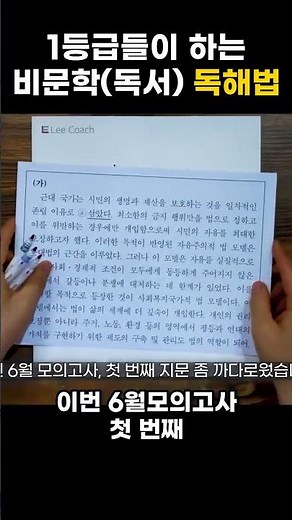 1등급들이 하는
비문학(독서) 독해법
Lee Coach
(가)
근대 국가는 시민의 생명과 재산을 보호하는 것을 일차적인
존립 이유로 ⓐ삼았다. 최소한의 금지 행위만을 법으로 정하고
이를 위반하는 경우에만 개입함으로써 시민의 자유를 최대한
보장하고자 했다. 이러한 목적이 반영된 자유주의적 법 모델은
근대법의 근간을 이루었다. 그러나 이 모델은 자유를 실질적으로
사회·경제적 조건이 모두에게 동등하게 주어지지 않은
에서 갈등이나 분쟁에 대처하는 데 한계가 있었다. 이를
할 목적으로 등장한 것이 사회복지국가적 법 모델이다. 이
모델에서는 법이 삶의 세계에 더 깊숙이 개입한다. 개인의 권리
뿐 아니라 주거, 노동, 환경 등의 영역에서 평등과 연대의
가치를 구현하기 위한 제도의 구축 및 관리도 법의 역할이 되어
6월 모의고사, 첫 번째 지문 좀 까다로웠습
이번 6월모의고사
첫 번째